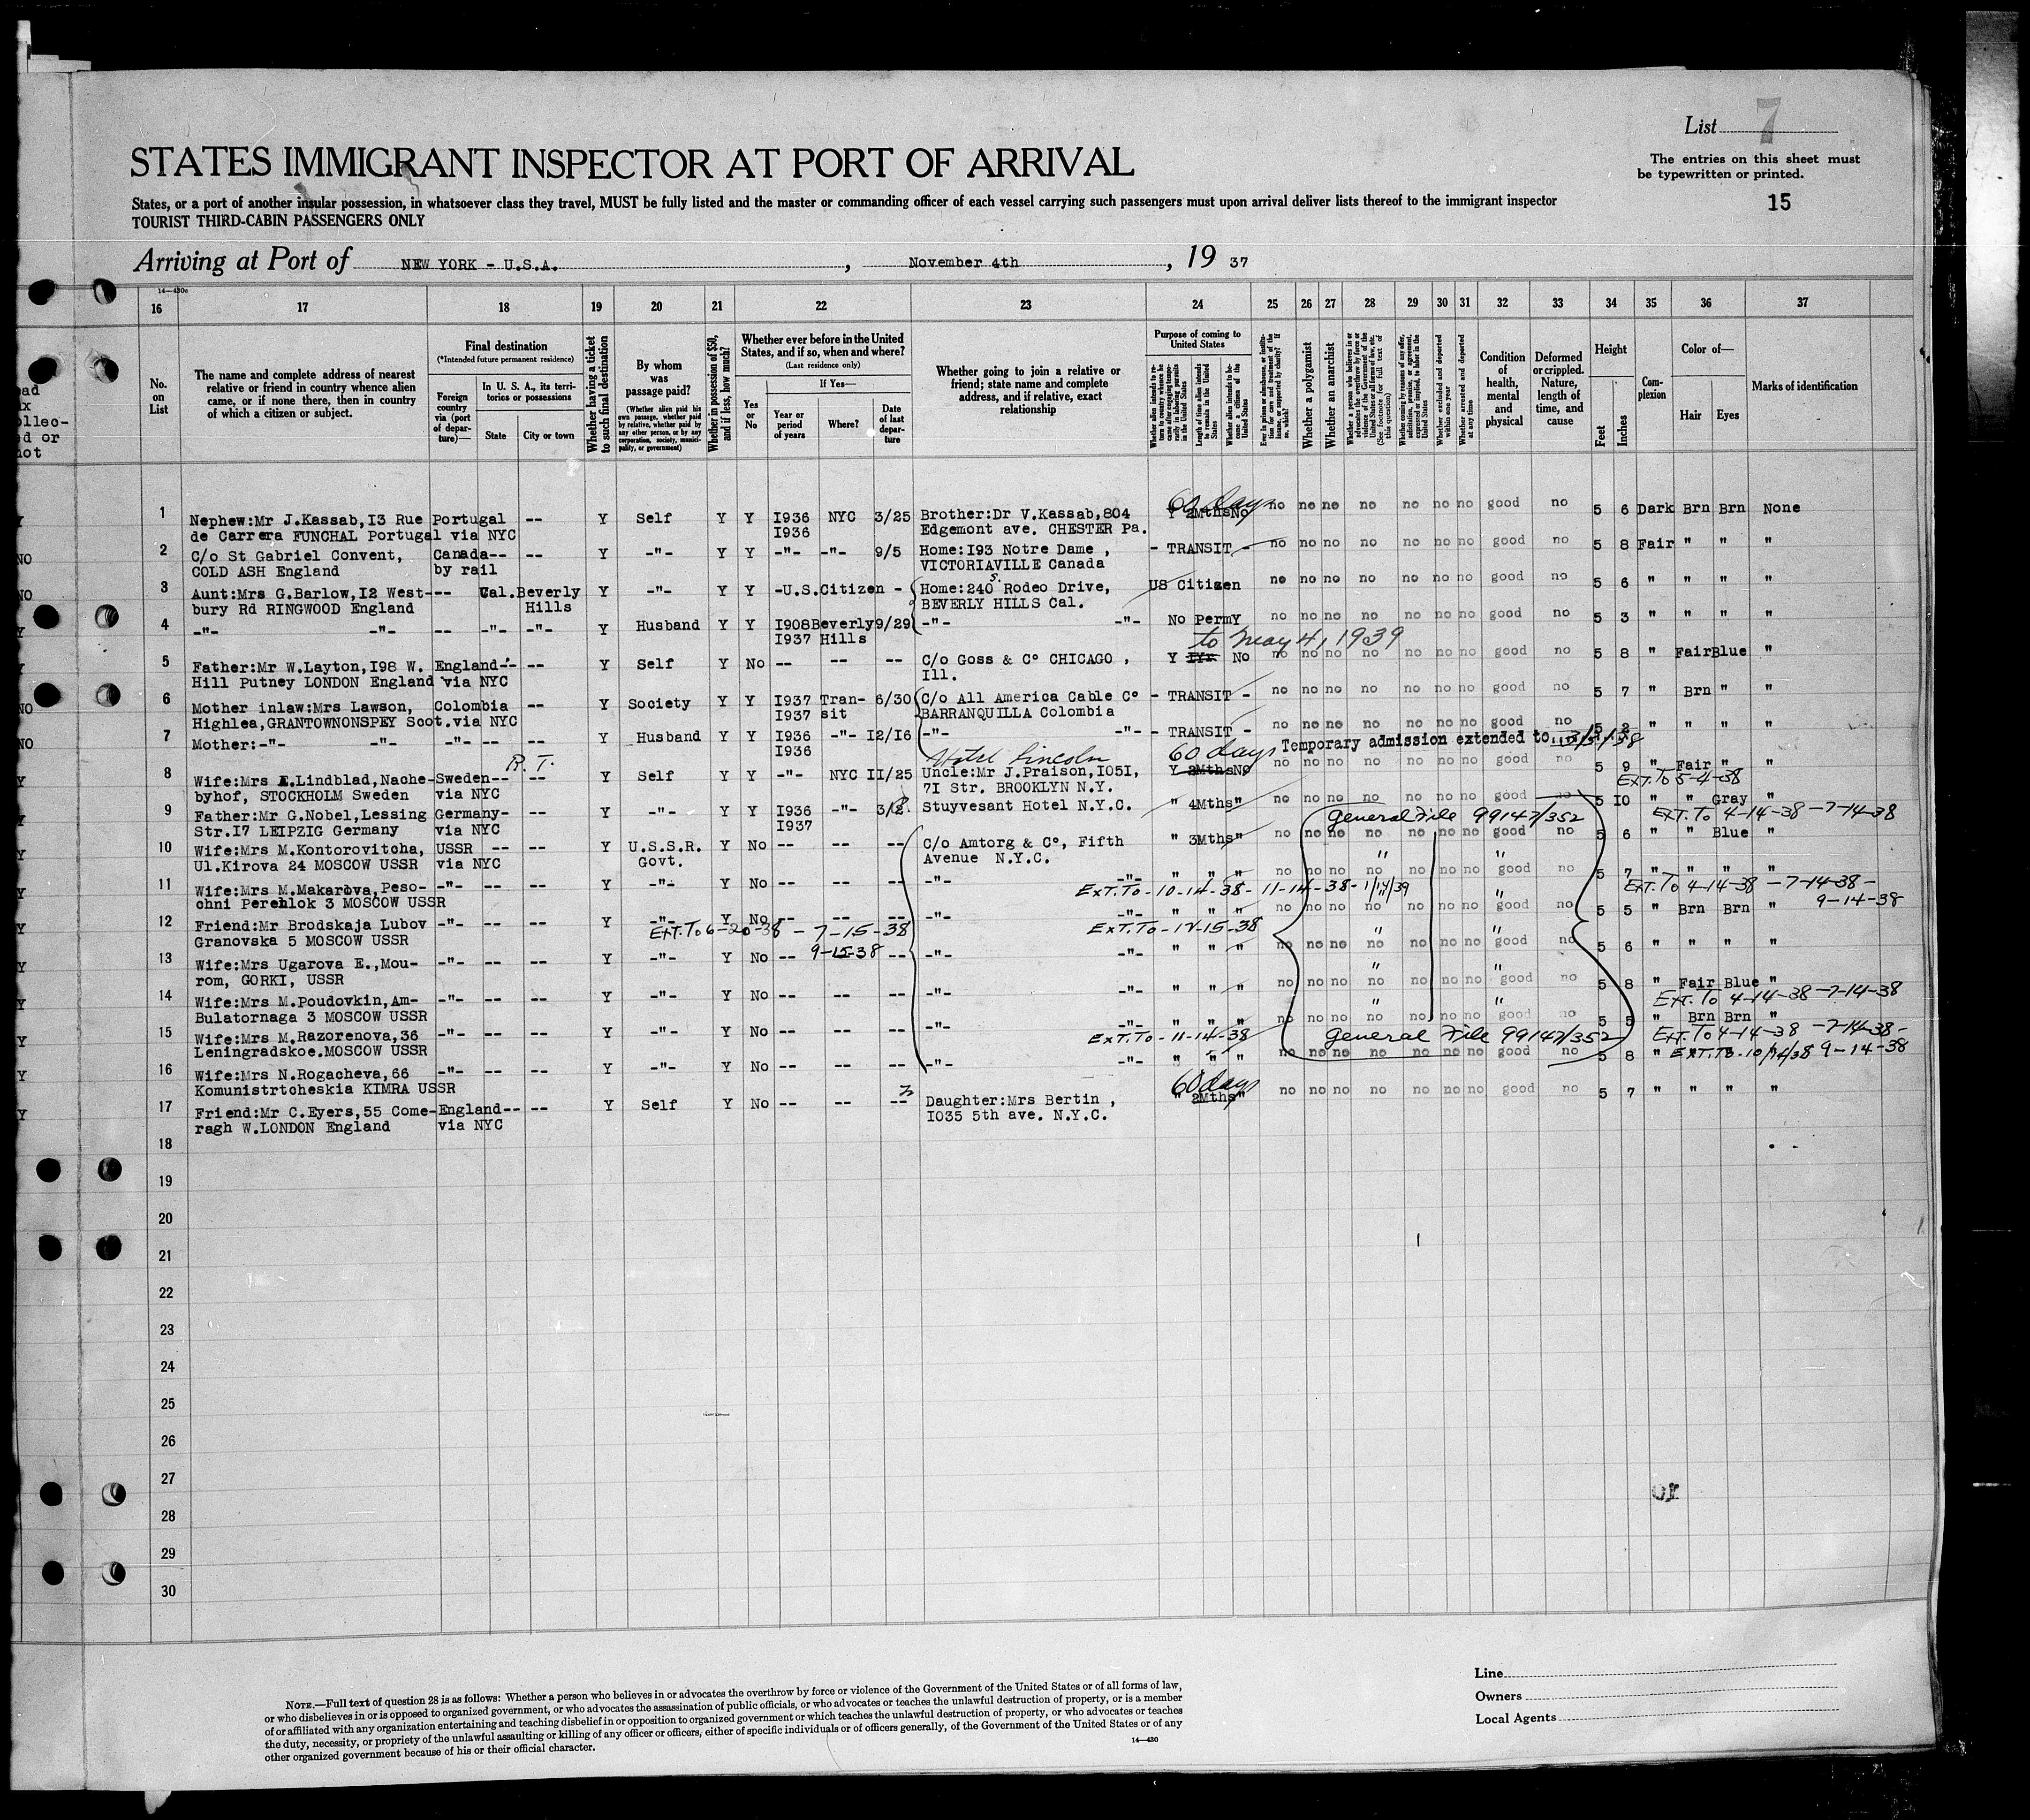 List 7
STATES IMMIGRANT INSPECTOR AT PORT OF ARRIVAL
The entries on this sheet must
be typewritten or printed.
States, or a port of another insular possession, in whatsoever class they travel, MUST be fully listed and the master or commanding officer of each vessel carrying such passengers must upon arrival deliver lists thereof to the immigrant inspector
TOURIST THIRD-CABIN PASSENGERS ONLY
15
Arriving at Port of NEW YORK - U.S.A. , November 4th , 19 37
16 17 18 19 20 21 22 23 24 25 26 27 28 29 30 31 32 33 34 35 36 37
No. on List
The name and complete address of nearest
relative or friend in country whence alien
came, or if none there, then in country
of which a citizen or subject.
Final destination
(*Intended future permanent residence)
Foreign country via (port of departure)—
In U. S. A., its territories or possessions
State
City or town
Whether having a ticket to such final destination
By whom was passage paid?
(Whether alien paid his own passage, whether paid by relative, whether paid by any other person, or by any corporation, society, municipality, or government)
Whether in possession of $50, and if less, how much?
Whether ever before in the United States, and if so, when and where?
(Last residence only)
Yes or No
If Yes—
Year or period of years
Where?
Date of last departure
Whether going to join a relative or
friend; state name and complete
address, and if relative, exact
relationship
Purpose of coming to United States
Whether a polygamist
Whether an anarchist
Whether excluded and deported within one year
Whether arrested and deported at any time
Condition of health, mental and physical
Deformed or crippled. Nature, length of time, and cause
Height
Feet
Inches
Complexion
Color of—
Hair
Eyes
Marks of identification
60 days
1 Nephew:Mr J.Kassab,I3 Rue Portugal -- Y Self Y Y I936 NYC 3/25 Brother:Dr V.Kassab,804 Y 2Mths No no no no no no no no good no 5 6 Dark Brn Brn None
de Carrera FUNCHAL Portugal via NYC I936 Edgemont ave. CHESTER Pa.
2 C/o St Gabriel Convent, Canada-- -- Y -"- Y Y -"- -"- 9/5 Home:I93 Notre Dame , - TRANSIT - no no no no no no no good no 5 8 Fair " " "
COLD ASH England by rail VICTORIAVILLE Canada
3 Aunt:Mrs G.Barlow,I2 West--- Cal.Beverly Y -"- Y Y -U.S.Citizen - Home:240 S. Rodeo Drive, US Citizen no no no no no no no good no 5 6 " " " "
bury Rd RINGWOOD England Hills BEVERLY HILLS Cal.
4 -"- -"- -- -"- -"- Y Husband Y Y I908 Beverly 9/29 -"- -"- No Perm Y no no no no no no no good no 5 3 " " " "
I937 Hills
to May 4, 1939
5 Father:Mr W.Layton,I98 W. England-- -- Y Self Y No -- -- -- C/o Goss & Co CHICAGO , Y IYr No no no no no no no no good no 5 8 " Fair Blue "
Hill Putney LONDON England via NYC Ill.
6 Mother inlaw:Mrs Lawson, Colombia -- Y Society Y Y I937 Tran- 6/30 C/o All America Cable Co - TRANSIT - no no no no no no no good no 5 7 " Brn " "
Highlea,GRANTOWNONSPEY Scot.via NYC I937 sit BARRANQUILLA Colombia
7 Mother:-"- -"- -"- -- -- Y Husband Y Y I936 -"- I2/I6 -"- -"- - TRANSIT - no no no no no no no good no 5 2 " " " "
I936
R.T. Hotel Lincoln 60 days Temporary admission extended to 3/5/38
8 Wife:Mrs E.Lindblad,Nache-Sweden-- -- Y Self Y Y -"- NYC II/25 Uncle:Mr J.Praison,I05I, Y 2Mths No no no no no no no no good no 5 9 " Fair " "
byhof, STOCKHOLM Sweden via NYC 7I Str. BROOKLYN N.Y. EXT. To 5-4-38
9 Father:Mr G.Nobel,Lessing Germany- -- Y -"- Y Y I936 -"- Stuyvesant Hotel N.Y.C. " 4Mths" no no no no no no no good no 5 IO " " Gray "
Str.I7 LEIPZIG Germany via NYC I937 General File 99147/352 EXT. To 4-14-38 -7-14-38
10 Wife:Mrs M.Kontorovitcha, USSR -- -- Y U.S.S.R. Y No -- -- -- C/o Amtorg & Co, Fifth " 3Mths" no no no no no no no good no 5 6 " " Blue "
Ul.Kirova 24 MOSCOW USSR via NYC Govt. Avenue N.Y.C. " "
11 Wife:Mrs M.Makarova,Peso- -"- -- -- Y -"- Y No -- -- -- -"- -"- " " " no no no no no no no good no 5 7 " " " "
chni Perehlok 3 MOSCOW USSR EXT. To - 10-14-38 - 11-14-38 - 1/14/39 " EXT. To 4-14-38 -7-14-38 -
9-14-38
12 Friend:Mr Brodskaja Lubov -"- -- -- Y -"- Y No -- -- -- -"- -"- " " " no no no no no no no good no 5 5 " Brn Brn "
Granovska 5 MOSCOW USSR EXT. To 6-20-38 - 7-15-38 EXT. To - 12-15-38 " "
9-15-38
13 Wife:Mrs Ugarova E.,Mou- -"- -- -- Y -"- Y No -- -- -"- -"- " " " no no no no no no no good no 5 6 " " " "
rom, GORKI, USSR " "
14 Wife:Mrs M.Poudovkin,Am- -"- -- -- Y -"- Y No -- -- -- -"- -"- " " " no no no no no no no good no 5 8 " Fair Blue "
Bulatornaga 3 MOSCOW USSR " " EXT. To 4-14-38 -7-14-38
15 Wife:Mrs M.Razorenova,36 -"- -- -- Y -"- Y No -- -- -- -"- -"- " " " no no no no no no no good no 5 5 " Brn Brn "
Leningradskoe.MOSCOW USSR EXT. To - 11-14-38 General File 99147/352 EXT. To 4-14-38 -7-14-38 -
16 Wife:Mrs N.Rogacheva,66 -"- -- -- Y -"- Y No -- -- -- -"- -"- " " " no no no no no no no good no 5 8 " EXT. To - 10/14/38 9-14-38
Komunistrtcheskia KIMRA USSR
60 days
17 Friend:Mr C.Eyers,55 Come-England-- -- Y Self Y No -- -- -- Daughter:Mrs Bertin , " 2Mths" no no no no no no no good no 5 7 " " " "
ragh W.LONDON England via NYC I035 5th ave. N.Y.C.
18
19
20
21
22
23
24
25
26
27
28
29
30
Line
Owners
Local Agents
NOTE.—Full text of question 28 is as follows: Whether a person who believes in or advocates the overthrow by force or violence of the Government of the United States or of all forms of law,
or who disbelieves in or is opposed to organized government, or who advocates the assassination of public officials, or who advocates or teaches the unlawful destruction of property, or is a member
of or affiliated with any organization entertaining and teaching disbelief in or opposition to organized government or which teaches the unlawful destruction of property, or who advocates or teaches
the duty, necessity, or propriety of the unlawful assaulting or killing of any officer or officers, either of specific individuals or of officers generally, of the Government of the United States or of any
other organized government because of his or their official character.
14—430